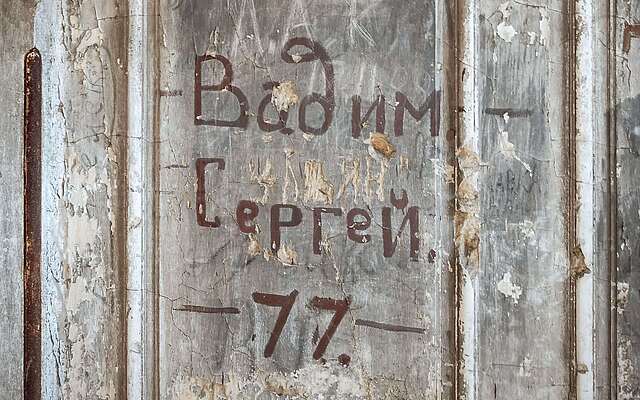 Вадим
Сергей.
— 77. —